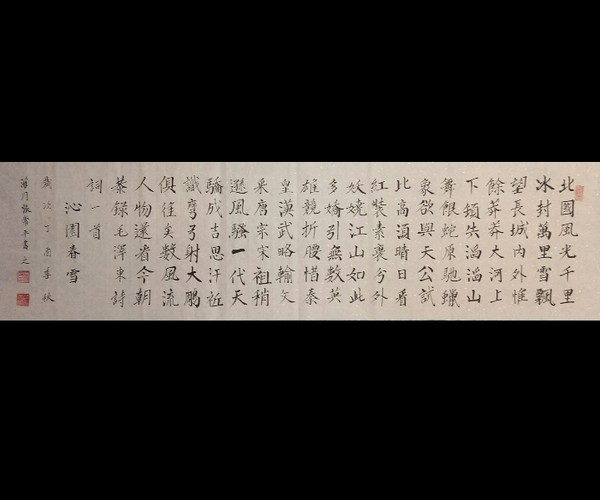 北國風光千里
冰封萬里雪飄
望長城內外惟
餘莽莽大河上
下頓失滔滔山
舞銀蛇原馳蠟
象欲與天公試
比高須晴日看
紅裝素裹兮外
妖嬈江山如此
多嬌引無數英
雄競折腰惜秦
皇漢武略輸文
采唐宗宋祖稍
遜風騷一代天
驕成吉思汗祗
識彎弓射大鵬
俱往矣數風流
人物還看今朝
錄毛澤東詩
詞一首
沁園春雪
歲次丁酉季秋
月張平書之